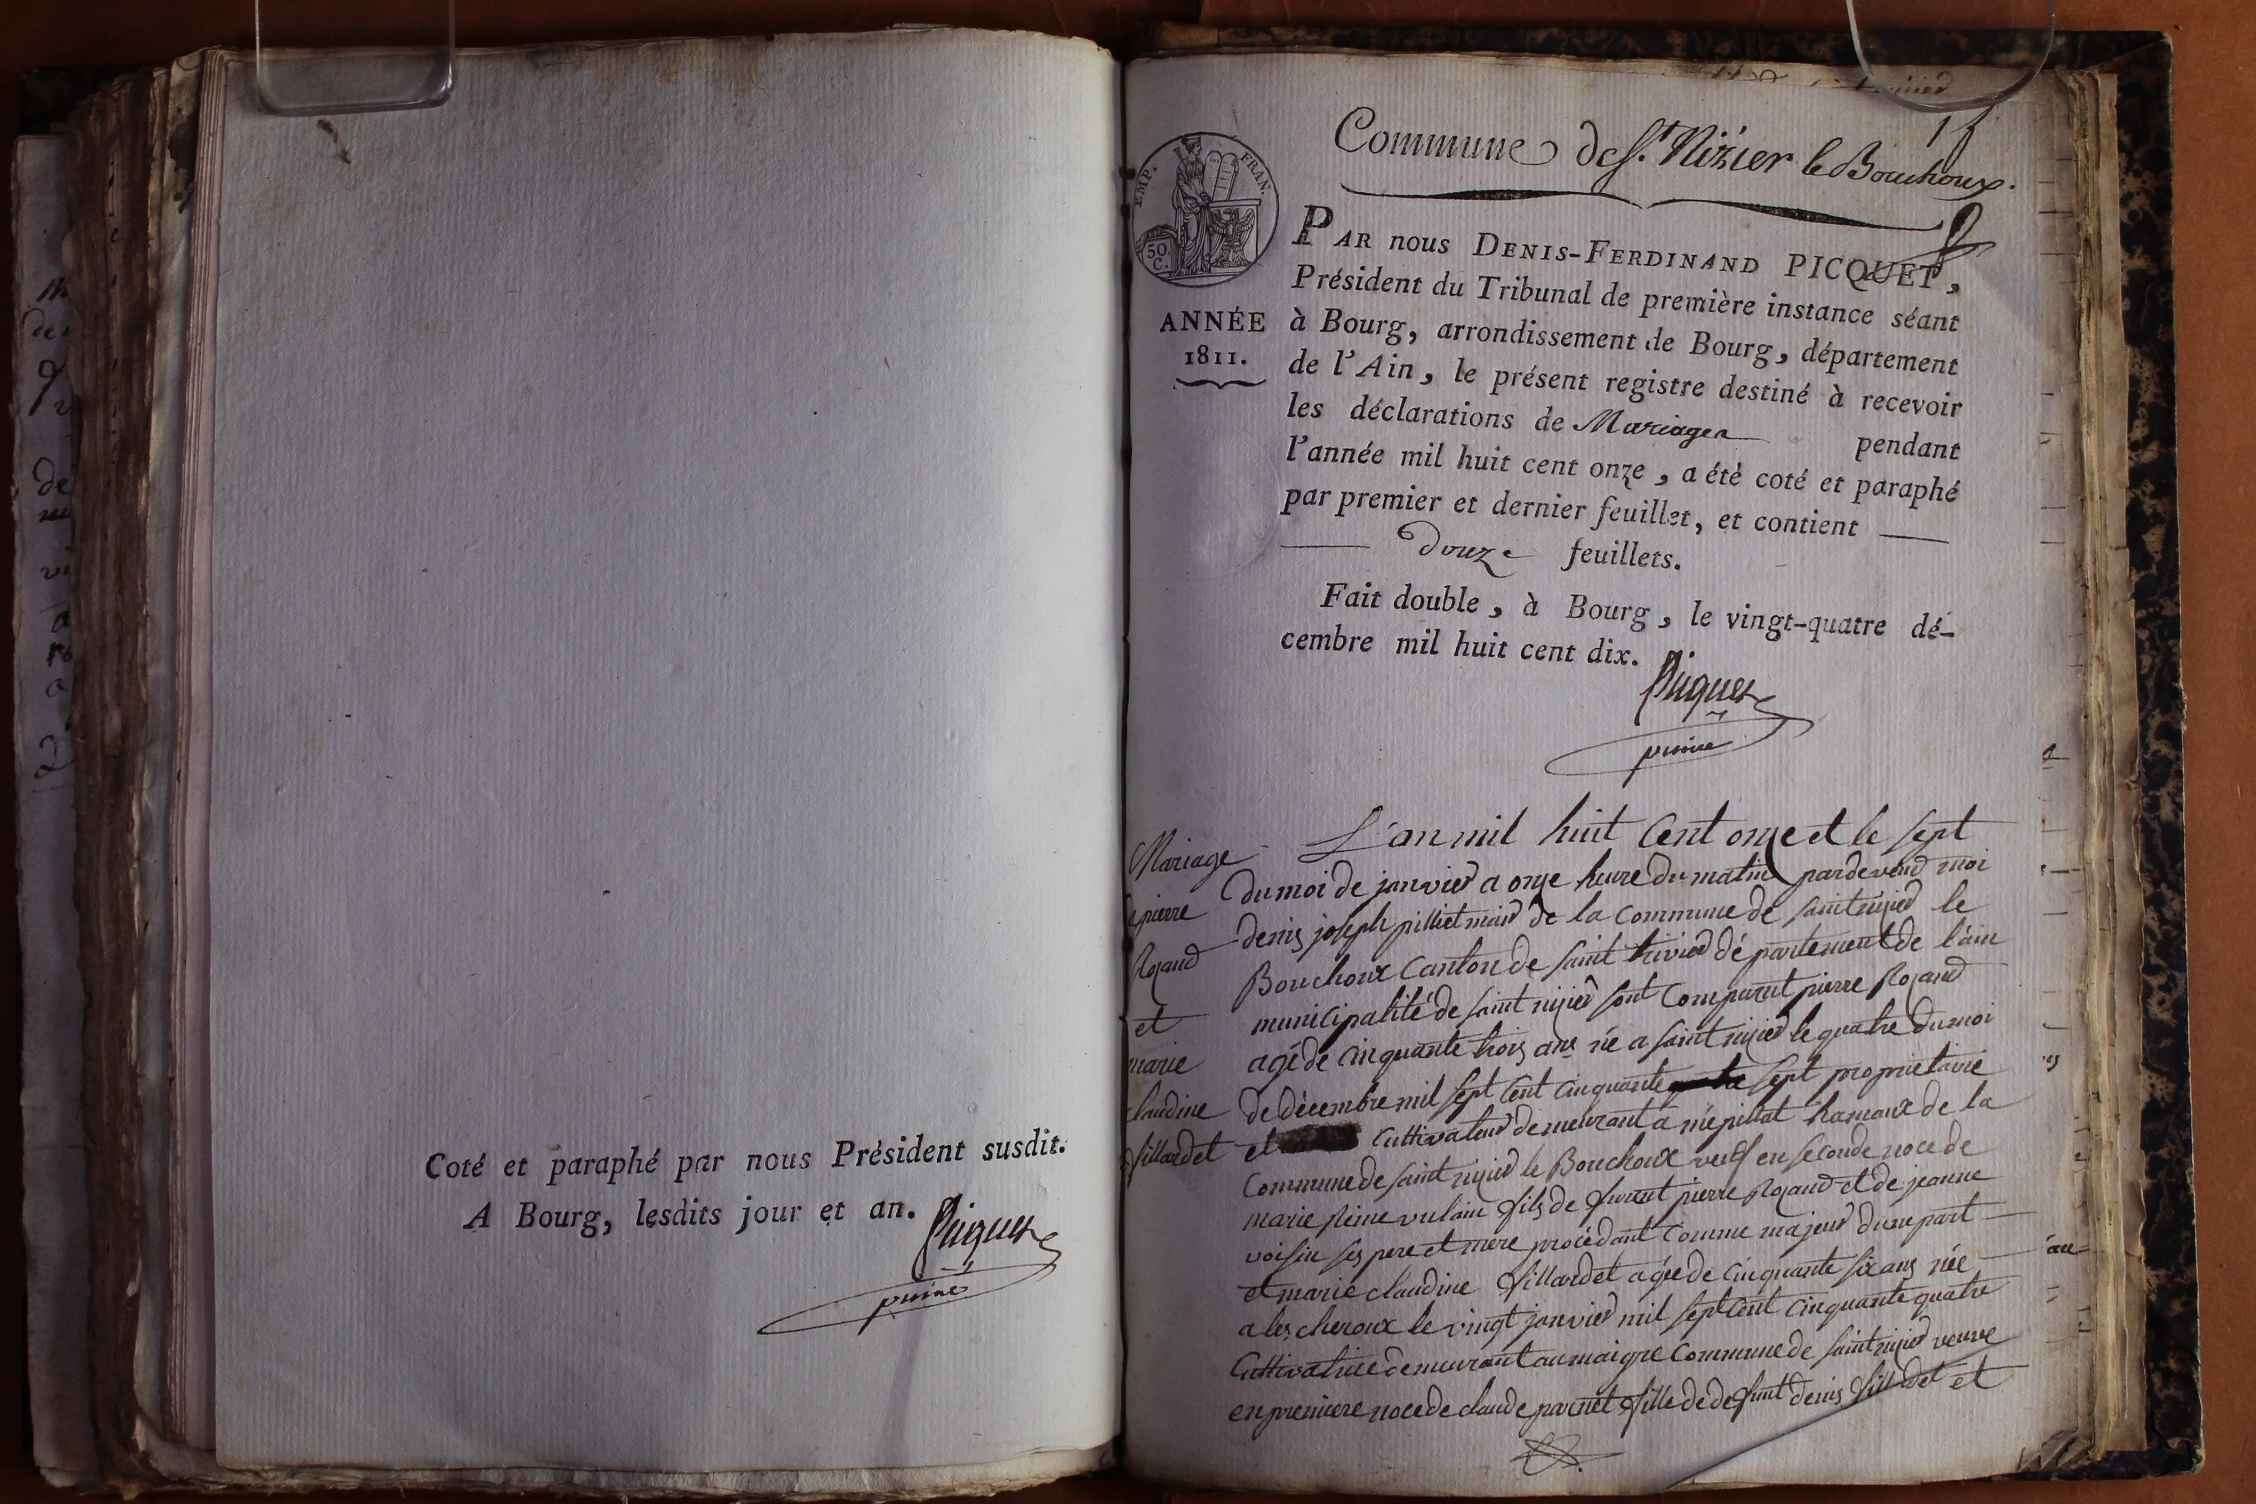 Coté et paraphé par nous Président susdit.
A Bourg, lesdits jour et an.
Picquet
puiné
Commune de St. Nizier le Bouchoux.
EMP. FRAN.
50
C.
ANNÉE
1811.
PAR nous DENIS-FERDINAND PICQUET,
Président du Tribunal de première instance séant
à Bourg, arrondissement de Bourg, département
de l'Ain, le présent registre destiné à recevoir
les déclarations de Mariages pendant
l'année mil huit cent onze, a été coté et paraphé
par premier et dernier feuillet, et contient
douze feuillets.
Fait double, à Bourg, le vingt-quatre dé-
cembre mil huit cent dix.
Picquet
puiné
Mariage
de pierre
Rojand
et
marie
claudine
fillardet
L'an mil huit Cent onze et le sept
du moi de janvier a onze heure du matin pardevend moi
denis joseph pilliet maire de la Commune de saint nizier le
Bouchoux Canton de saint trivier département de l'ain
municipalité de saint nizier sont Comparut pierre Rojand
agé de cinquante trois ans né a saint nizier le quatre du moi
de décembre mil sept Cent cinquante sept proprietaire
et Cultivateur demeurant a népillat hameaux de la
Commune de saint nizier le Bouchoux veuf en seconde noce de
marie rene vulain fils de furent pierre Rojand et de jeanne
voisin ses pere et mere procédant Comme majeur d'une part
et marie claudine fillardet agée de Cinquante six ans née
a les cheroux le vingt janvier mil sept Cent Cinquante quatre
Cultivatrice demeurant au maigre Commune de saint nizier veuve
en premiere noce de claude parnet fille de defunt denis fillardet et